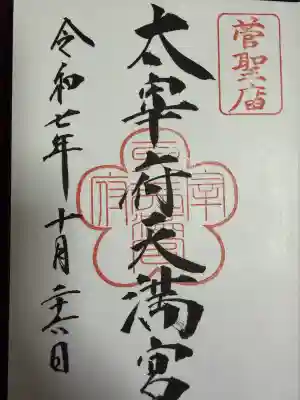 菅聖庿
太宰府天満宮
令和七年十月二十六日